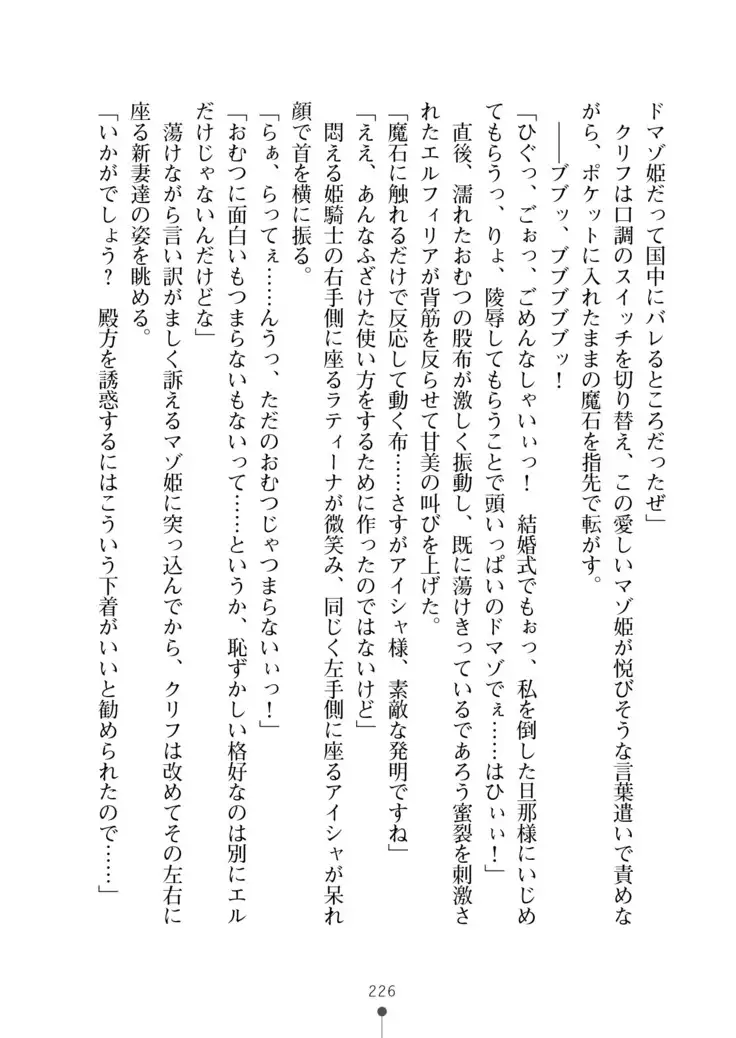 ドマゾ姫だって国中にバレるところだったぜ」
　クリフは口調のスイッチを切り替え、この愛しいマゾ姫が悦びそうな言葉遣いで責めな
がら、ポケットに入れたままの魔石を指先で転がす。
　――ブブッ、ブブブブブッ！
「ひぐっ、ごぉっ、ごめんなしゃいぃっ！　結婚式でもぉっ、私を倒した旦那様にいじめ
てもらうっ、りょ、陵辱してもらうことで頭いっぱいのドマゾでぇ……はひぃぃ！」
　直後、濡れたおむつの股布が激しく振動し、既に蕩けきっているであろう蜜裂を刺激さ
れたエルフィリアが背筋を反らせて甘美の叫びを上げた。
「魔石に触れるだけで反応して動く布……さすがアイシャ様、素敵な発明ですね」
「ええ、あんなふざけた使い方をするために作ったのではないけど」
　悶える姫騎士の右手側に座るラティーナが微笑み、同じく左手側に座るアイシャが呆れ
顔で首を横に振る。
「らぁ、らってぇ……んうっ、ただのおむつじゃつまらないぃっ！」
「おむつに面白いもつまらないもないって……というか、恥ずかしい格好なのは別にエル
だけじゃないんだけどな」
　蕩けながら言い訳がましく訴えるマゾ姫に突っ込んでから、クリフは改めてその左右に
座る新妻達の姿を眺める。
「いかがでしょう？　殿方を誘惑するにはこういう下着がいいと勧められたので……」
226